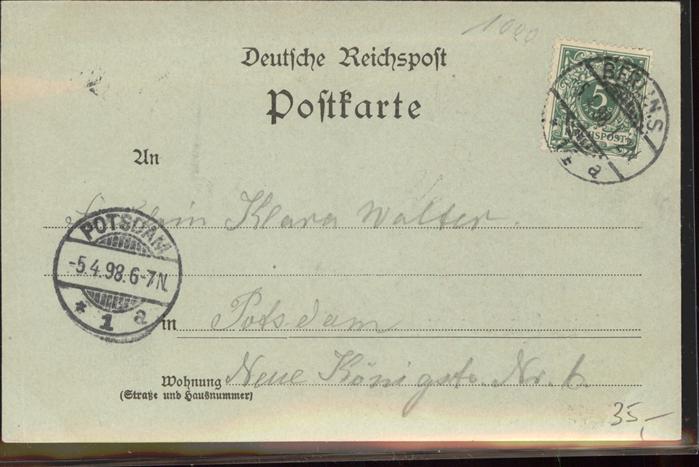 1000
Deutsche Reichspost
Postkarte
5
REICHSPOST
BERLIN.S.
a
An
Fräulein Klara Walter.
POTSDAM
-5.4.98.6-7N.
* 1 a
in Potsdam
Wohnung Neue Königstr. Nr.
(Straße und Hausnummer)
35,-